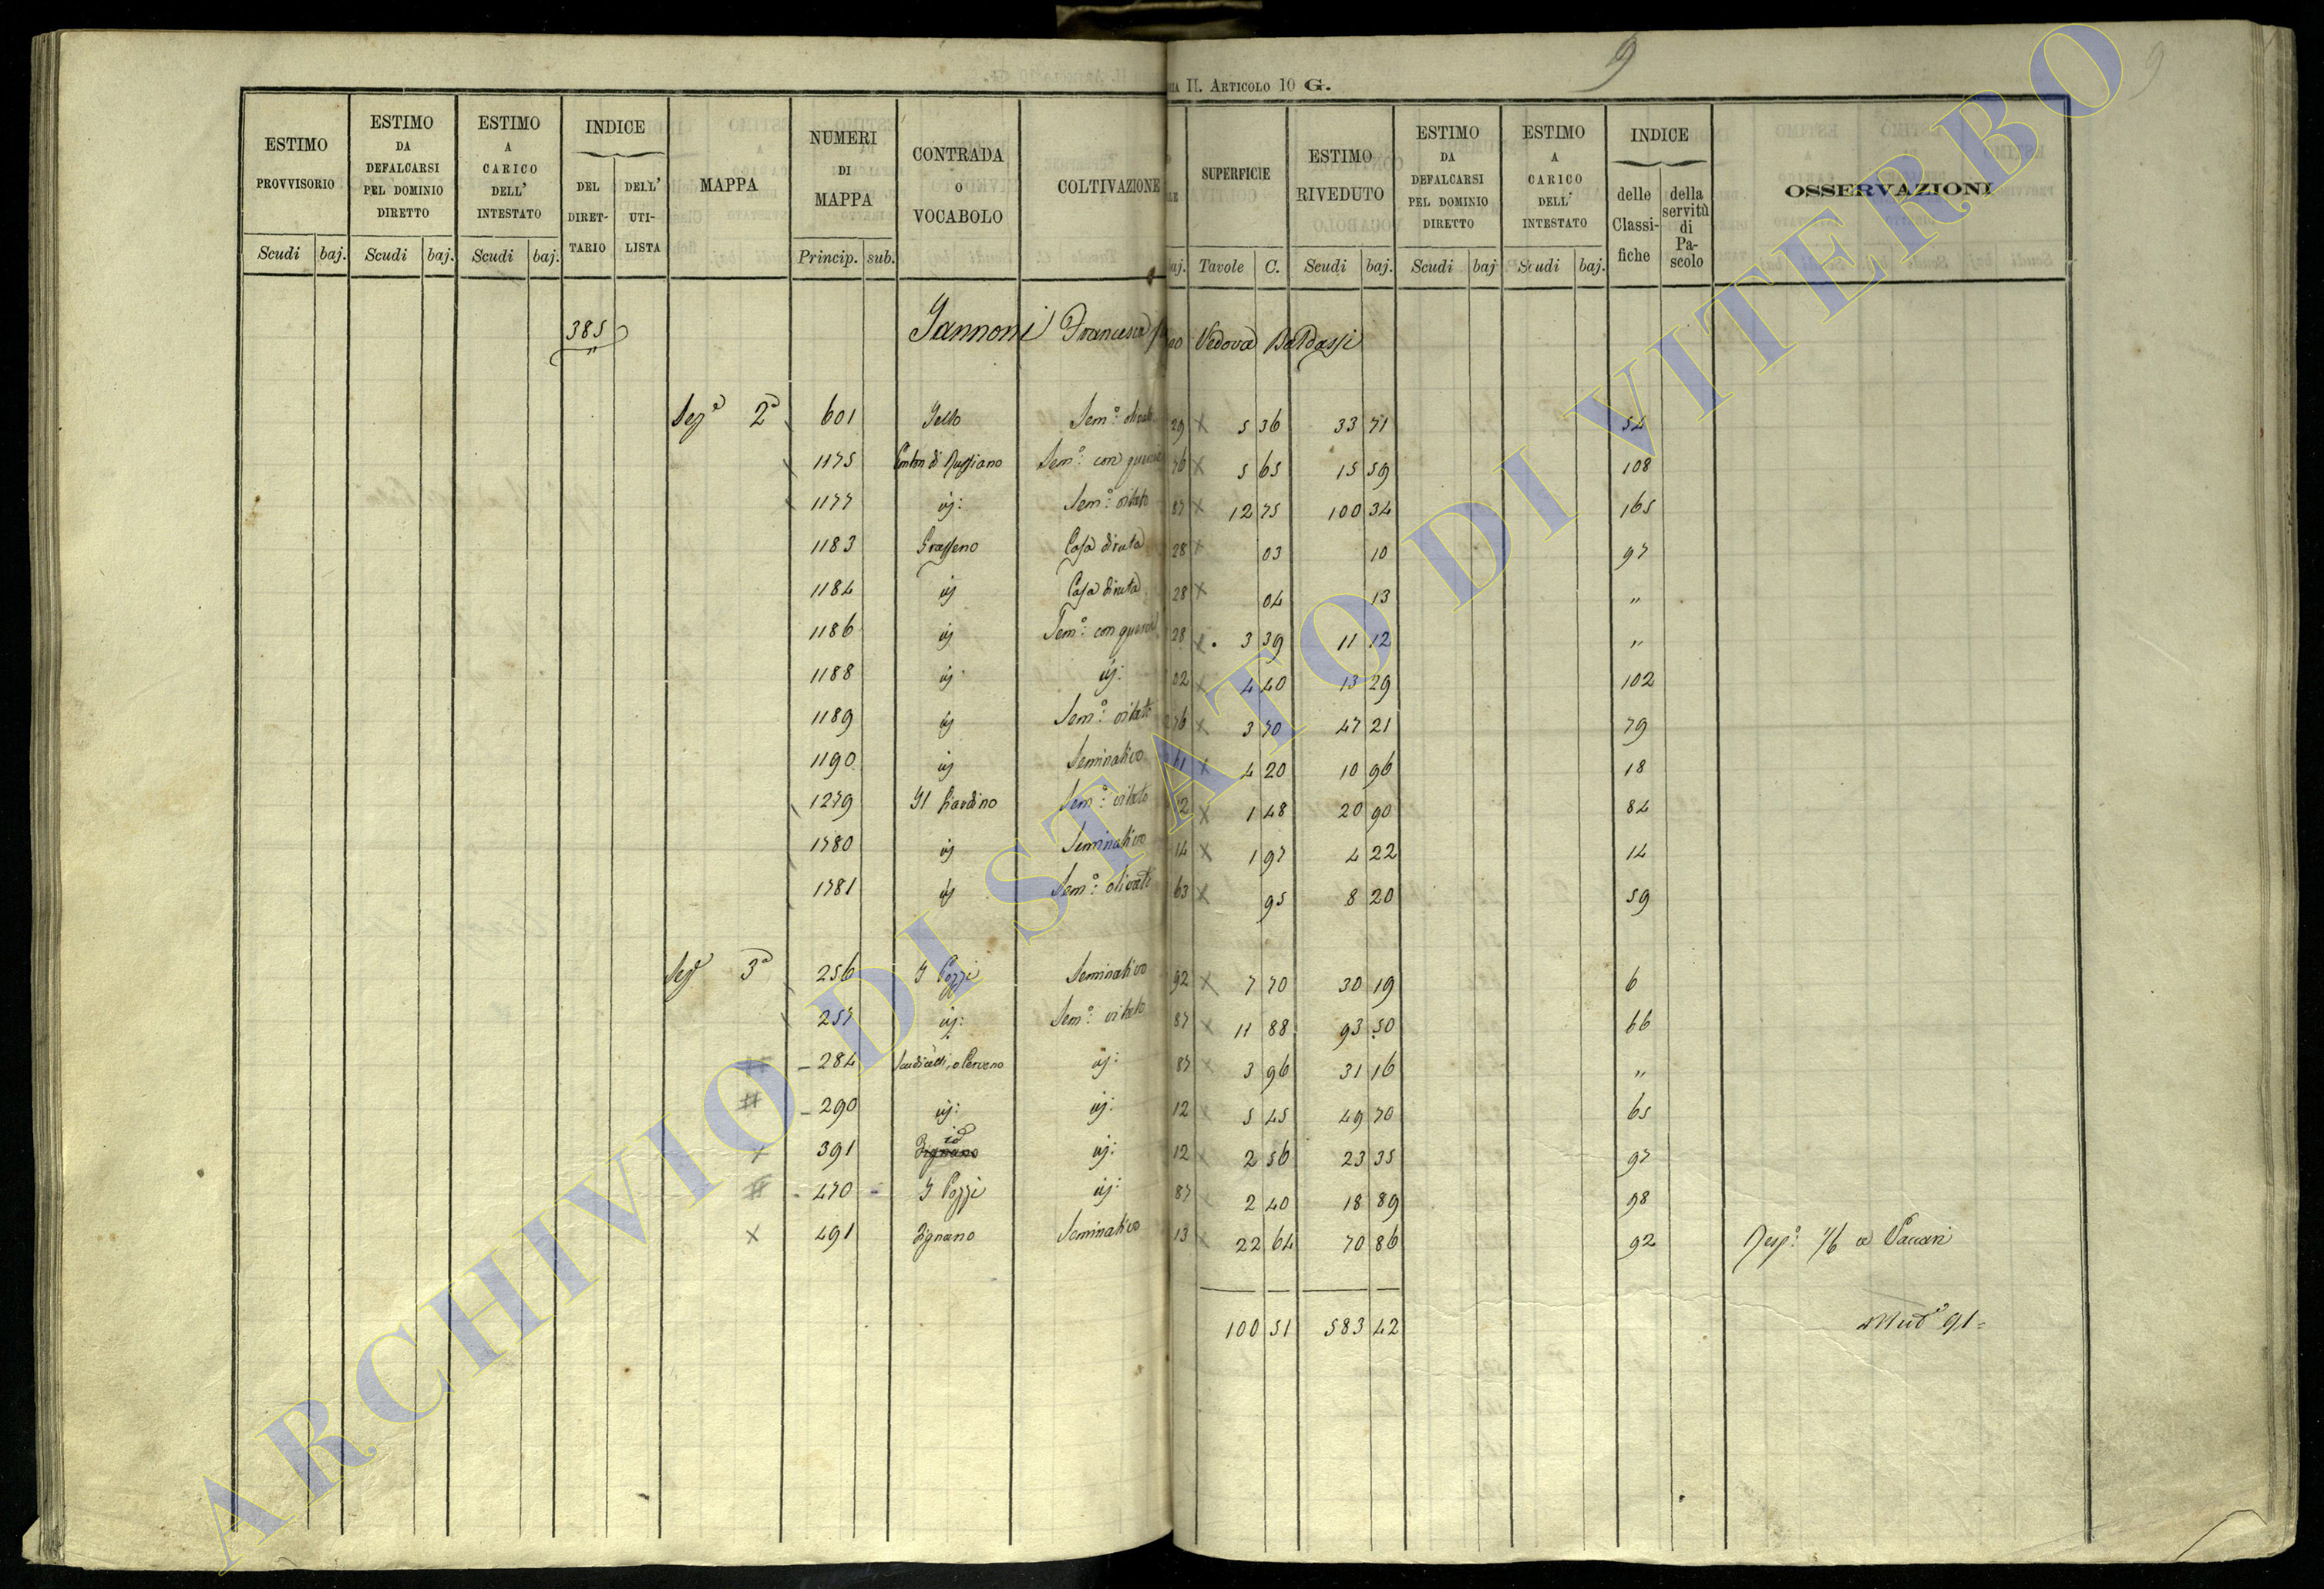 9
9
RIA II. ARTICOLO 10 G.
ESTIMO PROVVISORIO Scudi baj. ESTIMO DA DEFALCARSI PEL DOMINIO DIRETTO Scudi baj. ESTIMO A CARICO DELL' INTESTATO Scudi baj. INDICE DEL DIRETTARIO DELL' UTILISTA MAPPA NUMERI DI MAPPA Princip. sub. CONTRADA O VOCABOLO COLTIVAZIONE baj. SUPERFICIE Tavole C. ESTIMO RIVEDUTO Scudi baj. ESTIMO DA DEFALCARSI PEL DOMINIO DIRETTO Scudi baj ESTIMO A CARICO DELL' INTESTATO Scudi baj. INDICE delle Classifiche della servitù di Pascolo OSSERVAZIONI
385 Iannoni Francesca Vedova Baldassi
Sez.e 2a 601 Sem.o olivato 29 x 5 36 33 71 54
1175 Sem.o con querce 76 x 5 65 15 59 108
1177 id: Sem.o vitato 87 x 12 75 100 34 165
1183 Graffeno Casa diruta 28 x 03 10 97
1184 id Casa diruta 28 x 04 13 "
1186 id Sem.o con querce 28 x 3 39 11 12 "
1188 id id: 02 x 4 40 13 29 102
1189 id Sem.o vitato 276 x 3 70 47 21 79
1190 id Seminativo 61 x 4 20 10 96 18
1279 Il Giardino Sem.o vitato 12 x 1 48 20 90 84
1780 id Seminativo 14 x 1 97 4 22 14
1781 id Sem.o olivato 63 x 95 8 20 59
Sez.e 3a 256 I Pozzi Seminativo 92 x 7 70 30 19 6
257 id: Sem.o vitato 87 x 11 88 93 50 66
# 284 id: 87 x 3 96 31 16 "
# 290 id: id: 12 x 5 45 49 70 65
x 391 id Zignano id: 12 x 2 56 23 35 97
# 470 I Pozzi id: 87 x 2 40 18 89 98
x 491 Zignano Seminativo 13 x 22 64 70 86 92 Resp.o 1/6 a Vaccari
100 51 583 42
91
ARCHIVIO DI STATO DI VITERBO